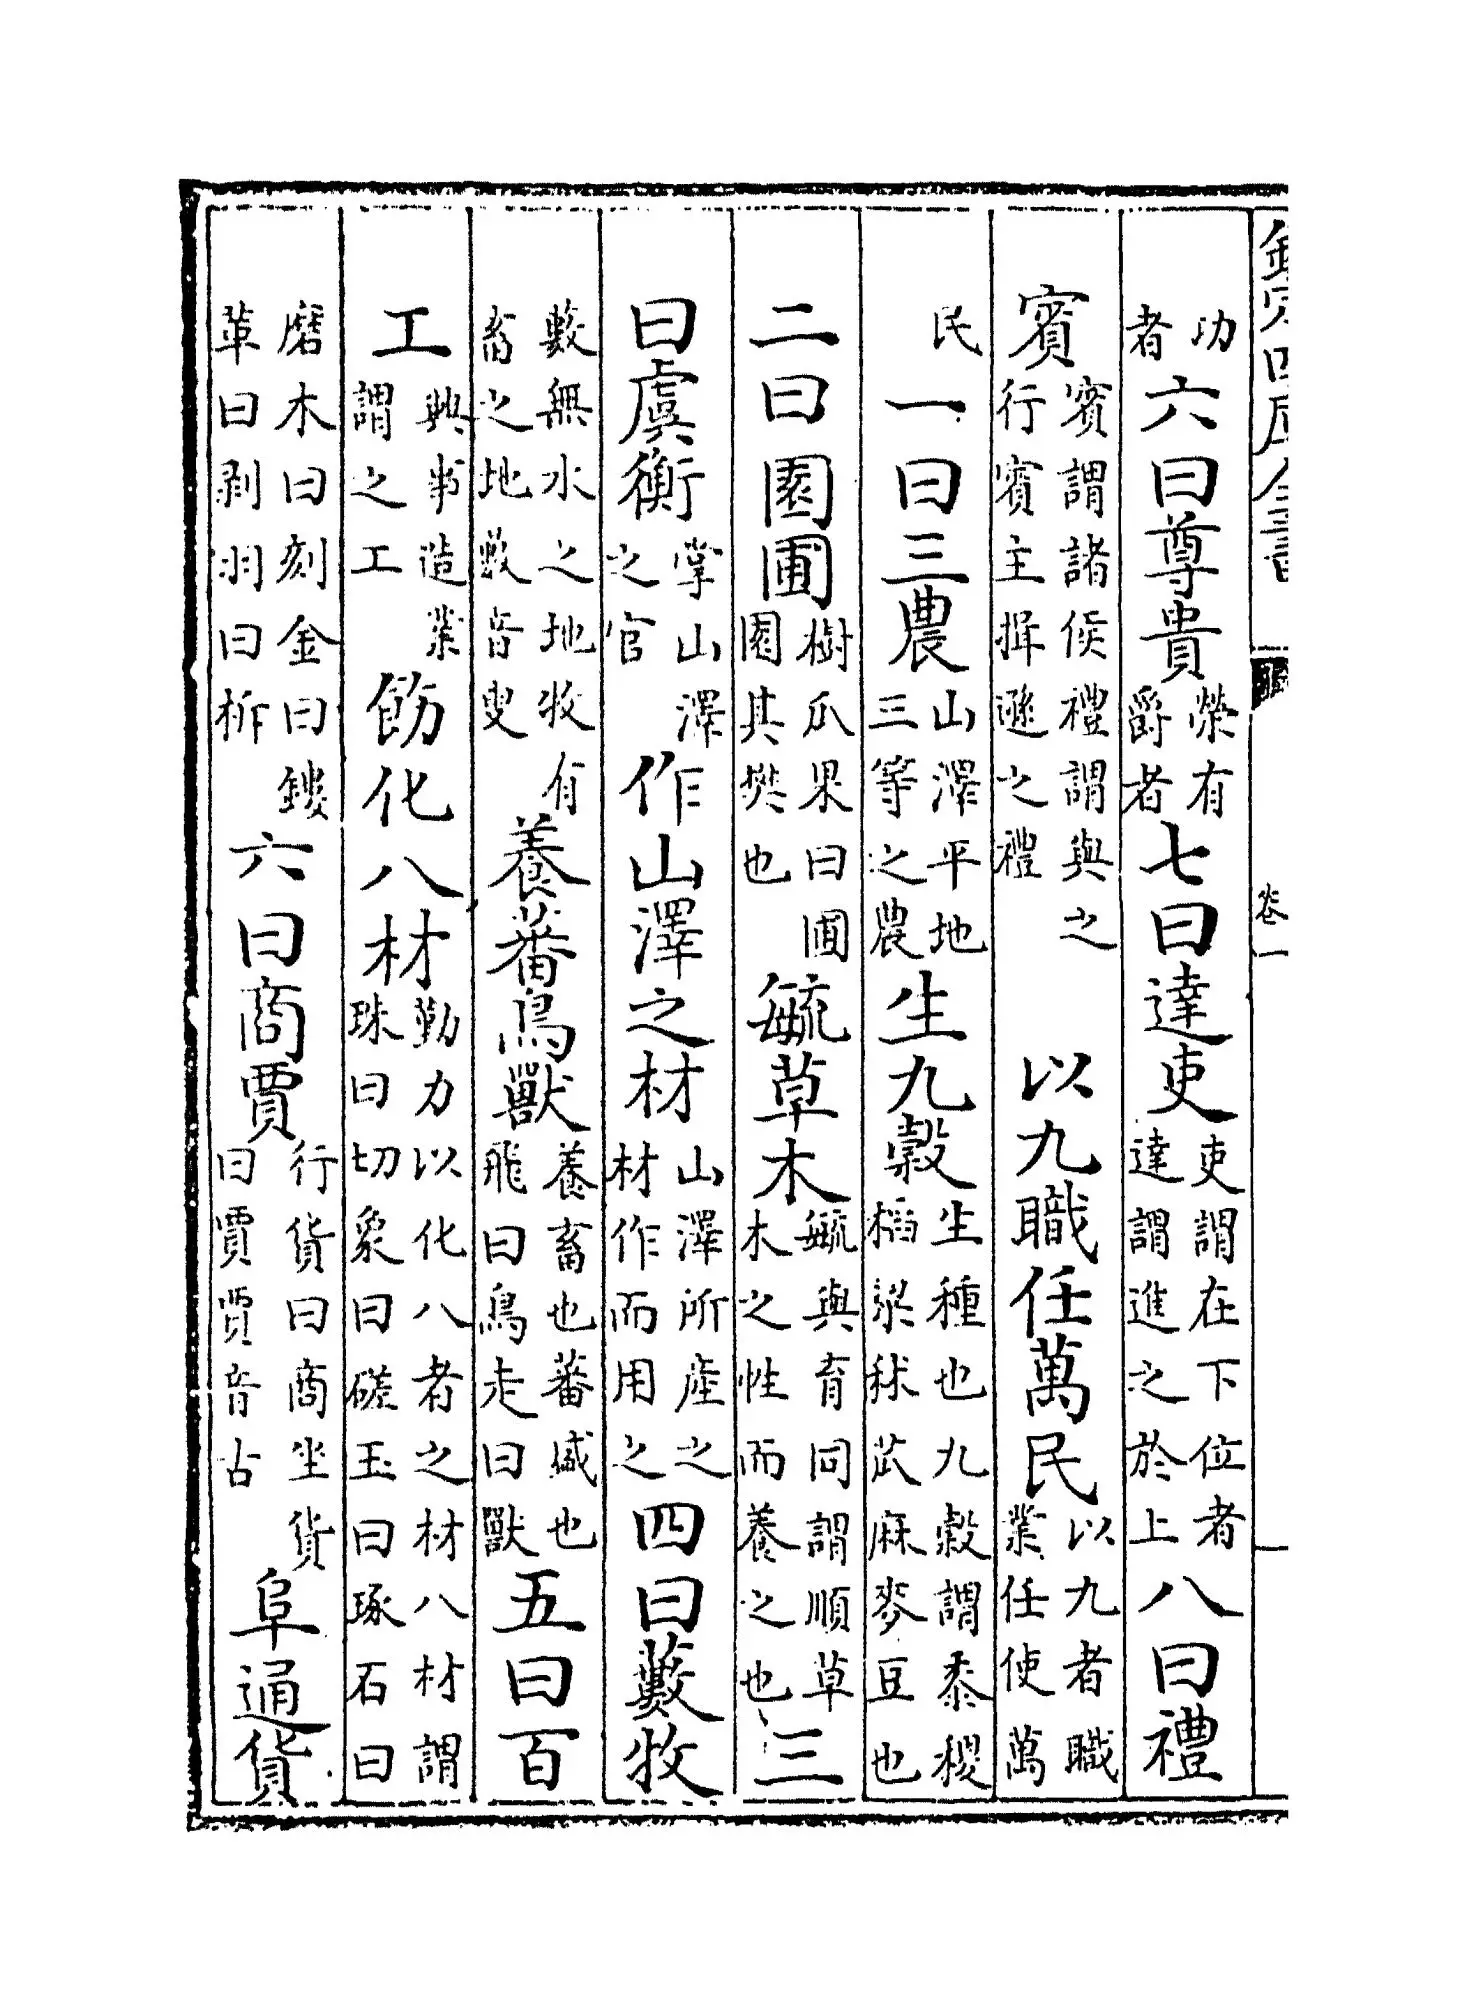 欽定四庫全書 卷一
功者六曰尊貴榮有爵者七曰達吏吏謂在下位者達謂進之於上八曰禮
賓賓謂諸侯禮謂與之行賓主揖遜之禮 以九職任萬民以九者職業任使萬
民一曰三農山澤平地三等之農生九穀生種也九穀謂黍稷稻粱秫苽麻麥豆也
二曰園圃樹瓜果曰圃園其樊也毓草木毓與育同謂順草木之性而養之也三
曰虞衡掌山澤之官作山澤之材山澤所產之材作而用之四曰藪牧
藪無水之地牧有畜之地藪音叟養蕃鳥獸養畜也蕃盛也飛曰鳥走曰獸五曰百
工興事造業謂之工飭化八材勤力以化八者之材八材謂珠曰切象曰磋玉曰琢石曰
磨木曰刻金曰鏤革曰剥羽曰析六曰商賈行貨曰商坐貨曰賈賈音古阜通貨